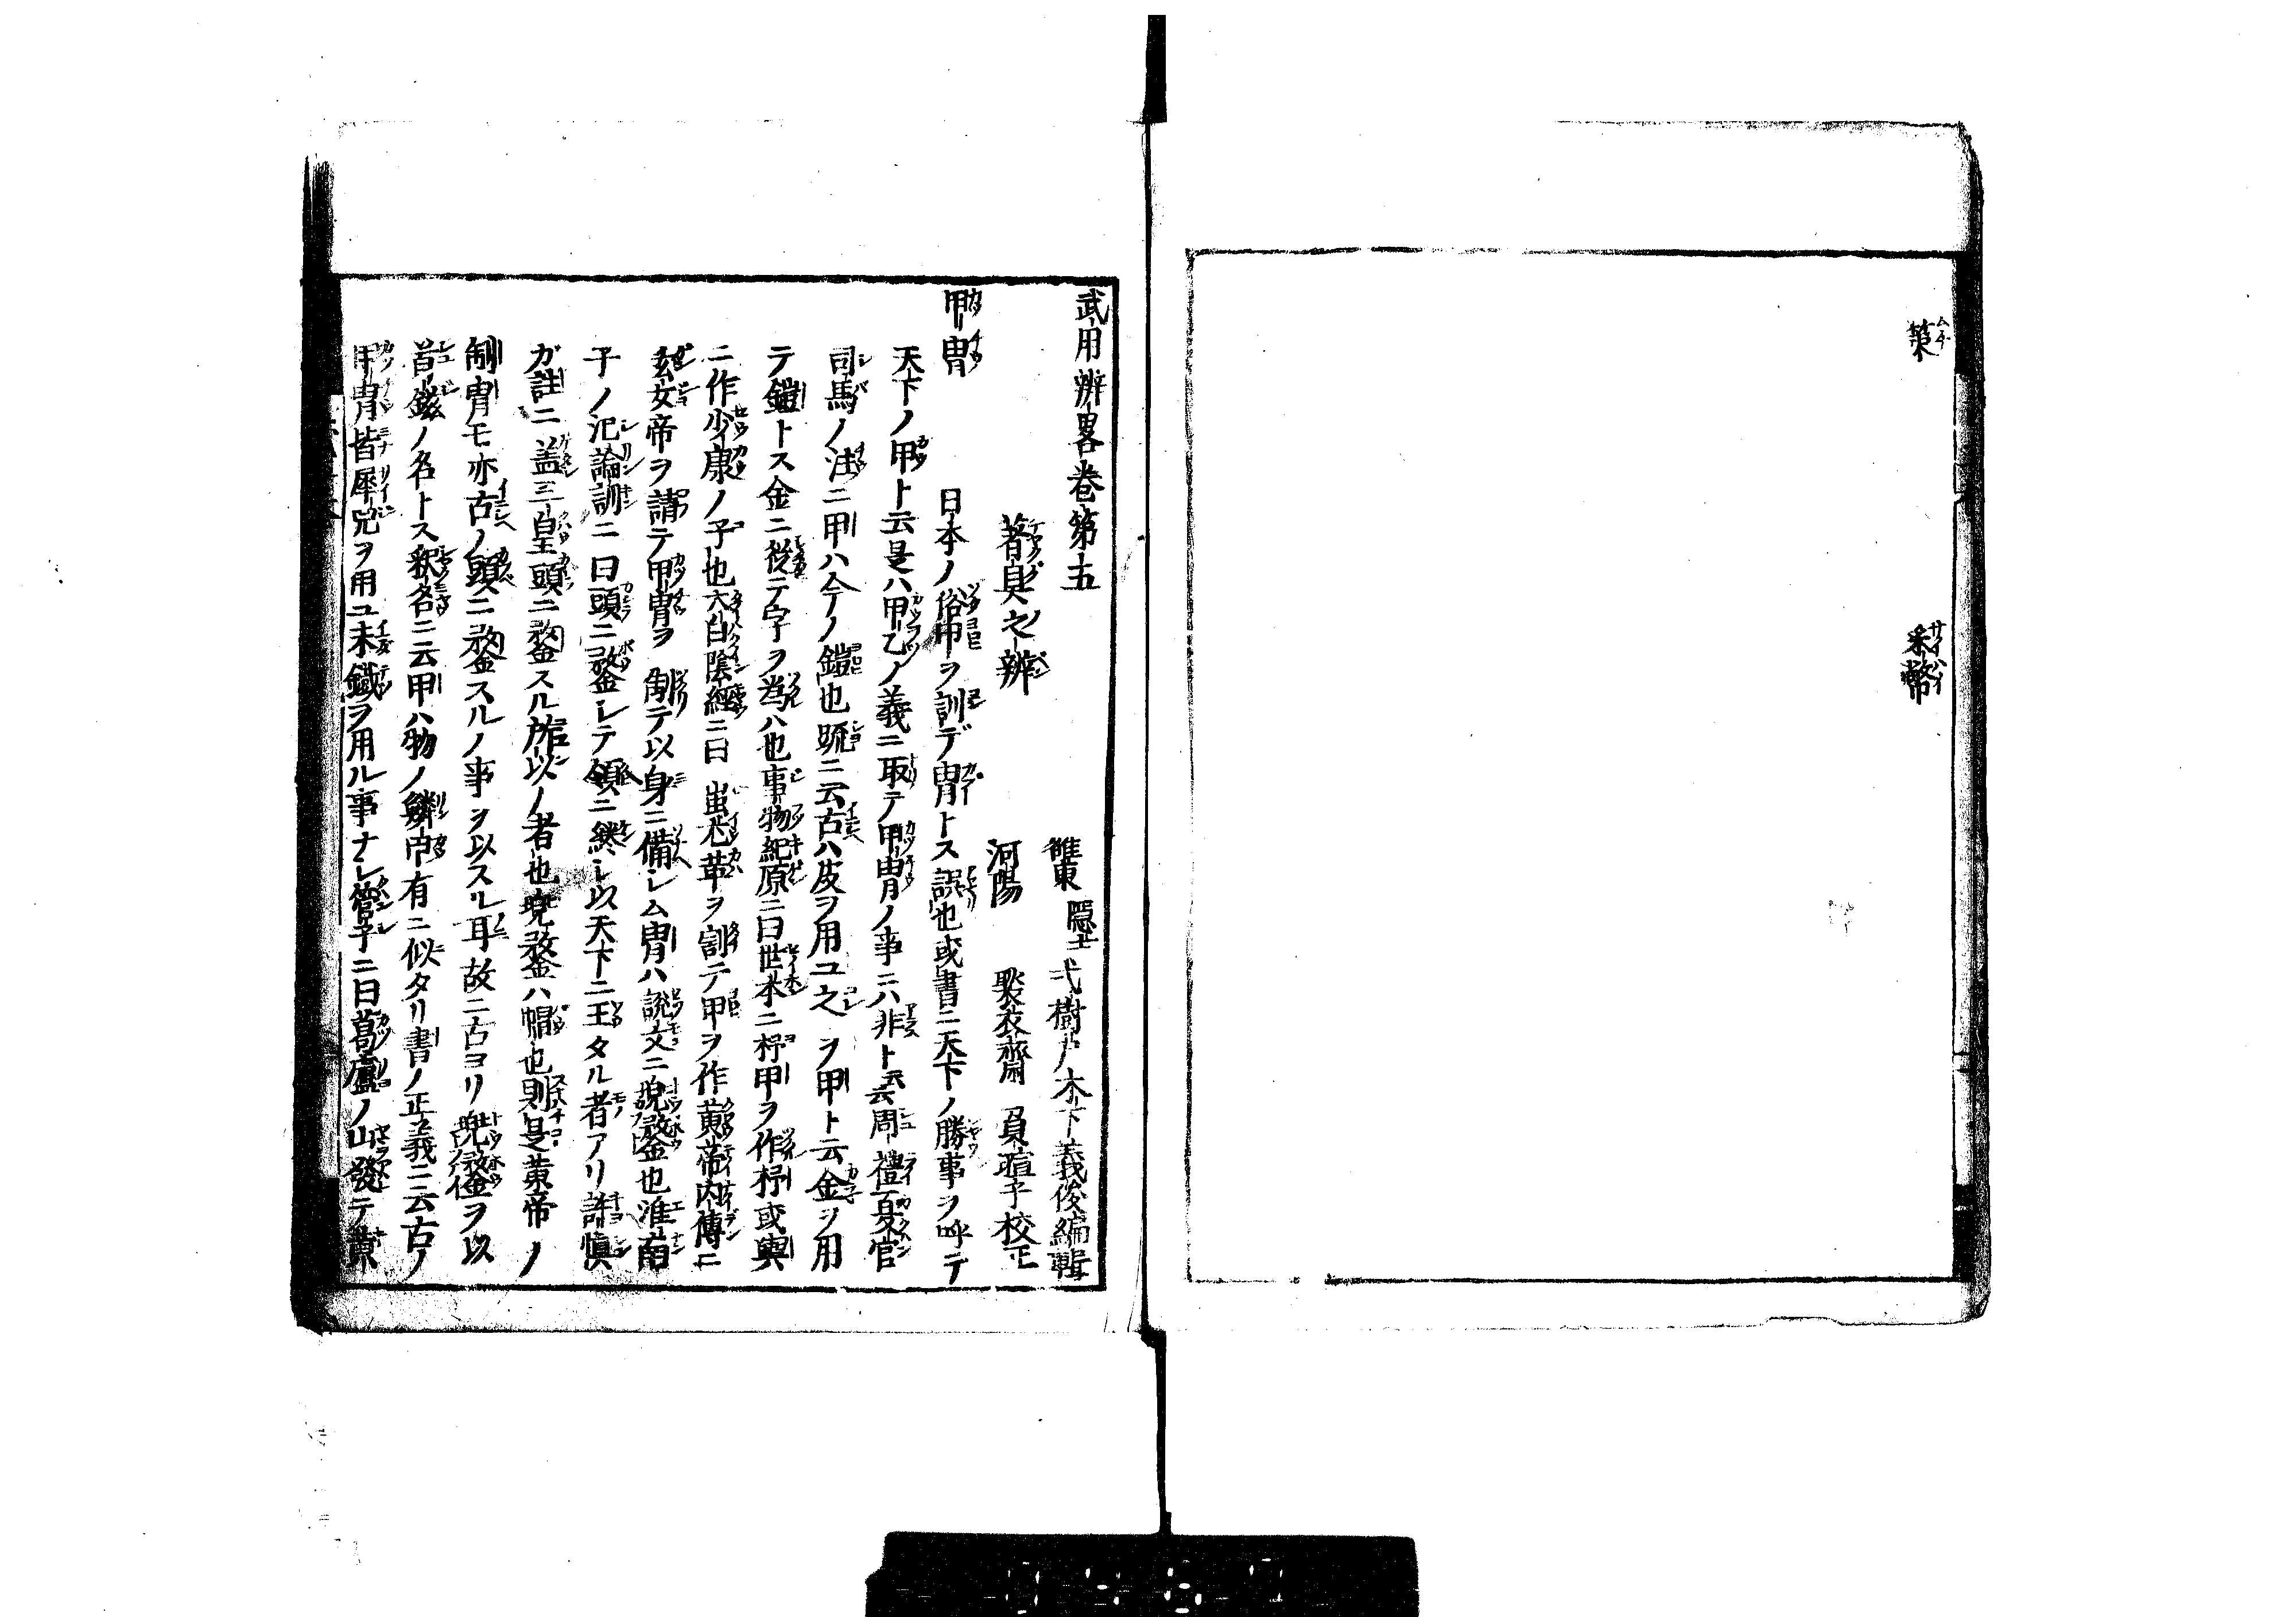 策
采幣
武用辨畧卷第五
著具之辨
雒東 隱士 弌樹戸木下義俊編輯
河陽 褧衣齋 員暄子校正
甲冑
日本ノ俗甲ヲ訓デ冑トス誤也或書ニ天下ノ勝事ヲ呼テ
天下ノ甲ト云是ハ甲乙ノ義ニ取テ甲冑ノ事ニハ非ト云云周禮夏官
司馬ノ注ニ甲ハ今ノ鎧也疏ニ云古ハ皮ヲ用ユ之ヲ甲ト云金ヲ用
テ鎧トス金ニ從テ字ヲ爲ハ也事物紀原ニ曰世本ニ杼甲ヲ作杼或輿
ニ作少康ノ子也太白陰經ニ曰蚩尤革ヲ割テ甲ヲ作黄帝内傳ニ
玄女帝ヲ請テ甲冑ヲ制テ以身ニ備シム冑ハ説文ニ兜鍪也淮南
子ノ氾論訓ニ曰頭ニ鍪シテ領ニ綣シ以天下ニ王タル者アリ許愼
ガ註ニ盖三皇頭ニ鍪スル所以ノ者也兜鍪ハ帽也則是黄帝ノ
制冑モ亦古ノ頭ニ鍪スルノ事ヲ以スル耳故ニ古ヨリ兜鍪ヲ以
首鎧ノ名トス釈名ニ云甲ハ物ノ鱗甲有ニ似タリ書ノ正義ニ云古ノ
甲冑皆犀兕ヲ用ユ未鐵ヲ用ル事ナシ管子ニ曰葛盧ノ山發テ黄